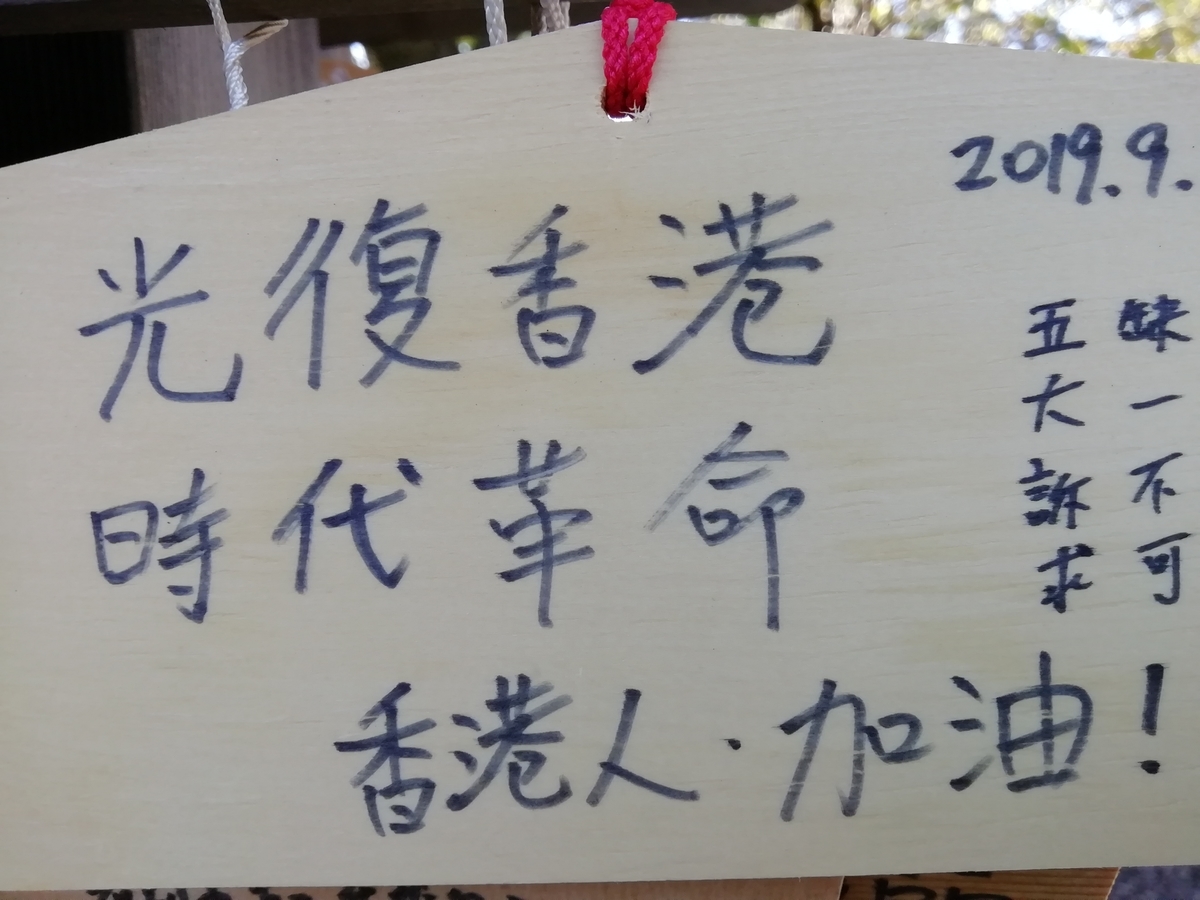 2019.9.
光復香港
時代革命
五大訴求
缺一不可
香港人·加油!